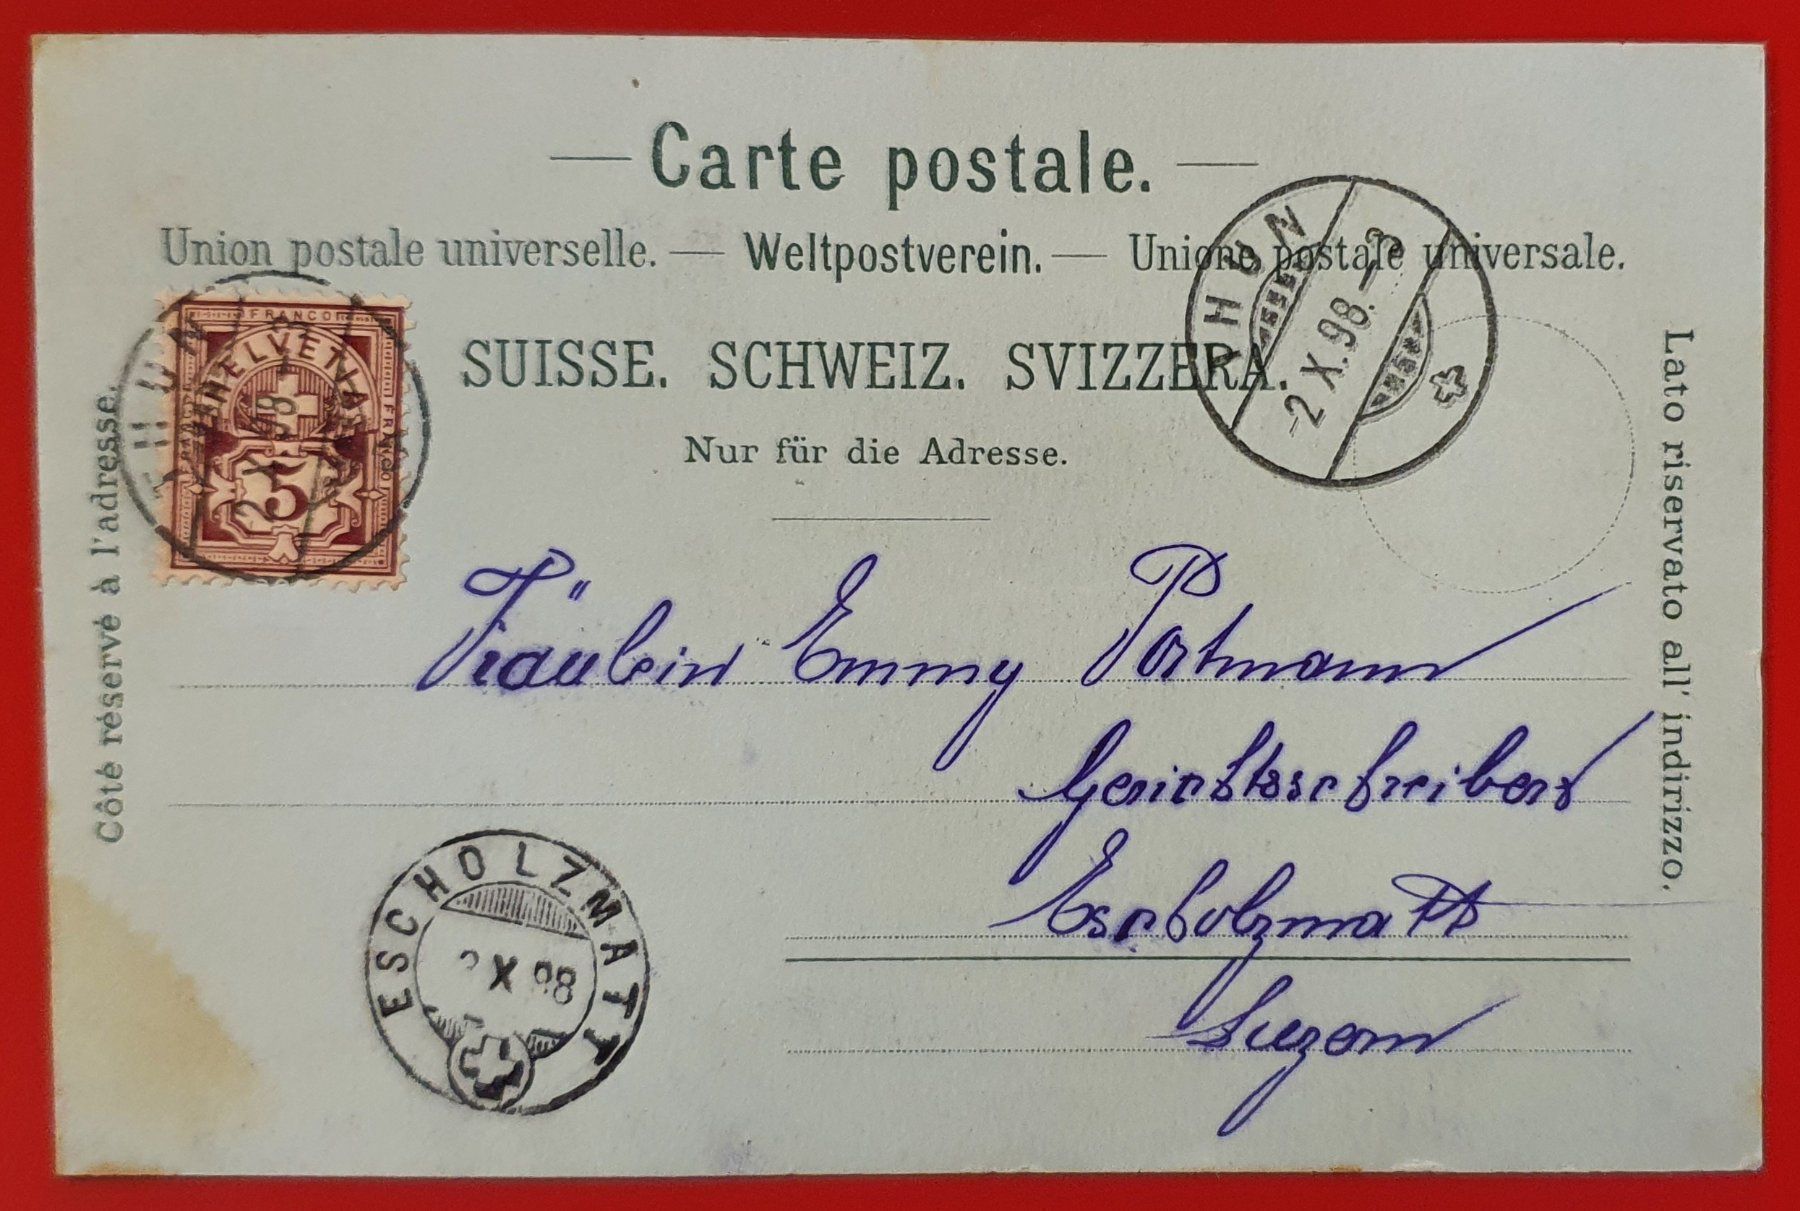 Carte postale.
Union postale universelle. — Weltpostverein. — Unione postale universale.
SUISSE. SCHWEIZ. SVIZZERA.
Nur für die Adresse.
Côté réservé à l'adresse.
Lato riservato all' indirizzo.
FRANCO
HELVETIA
FRANCO
5
THUN
2 X 98
THUN
-2.X.98.-3
Fräulein Emmy Portmann
Gerichtsschreibers
Escholzmatt
Luzern
ESCHOLZMATT
X 98